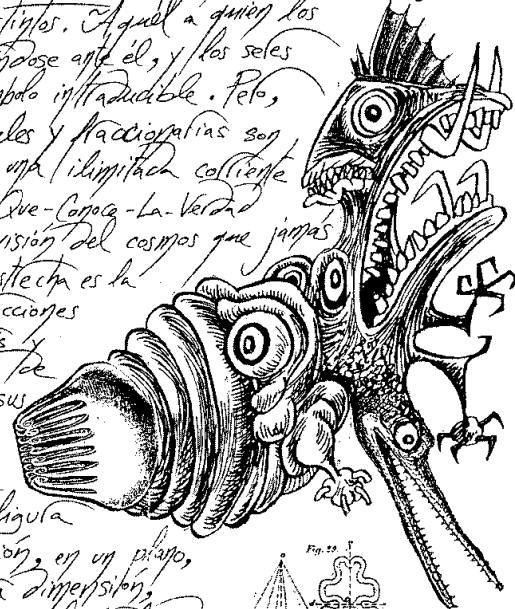 tintos. Aquél a quien los
ndose ante él, y los seres
mbolo intraducible. Pero,
ales y fraccionarias son
una ilimitada corriente
Que-Conoce-La-Verdad
visión del cosmos que jamás
strecha es la
cciones
s y
de
sus
figura
ón, en un plano,
a dimensión,
Fig. 29.